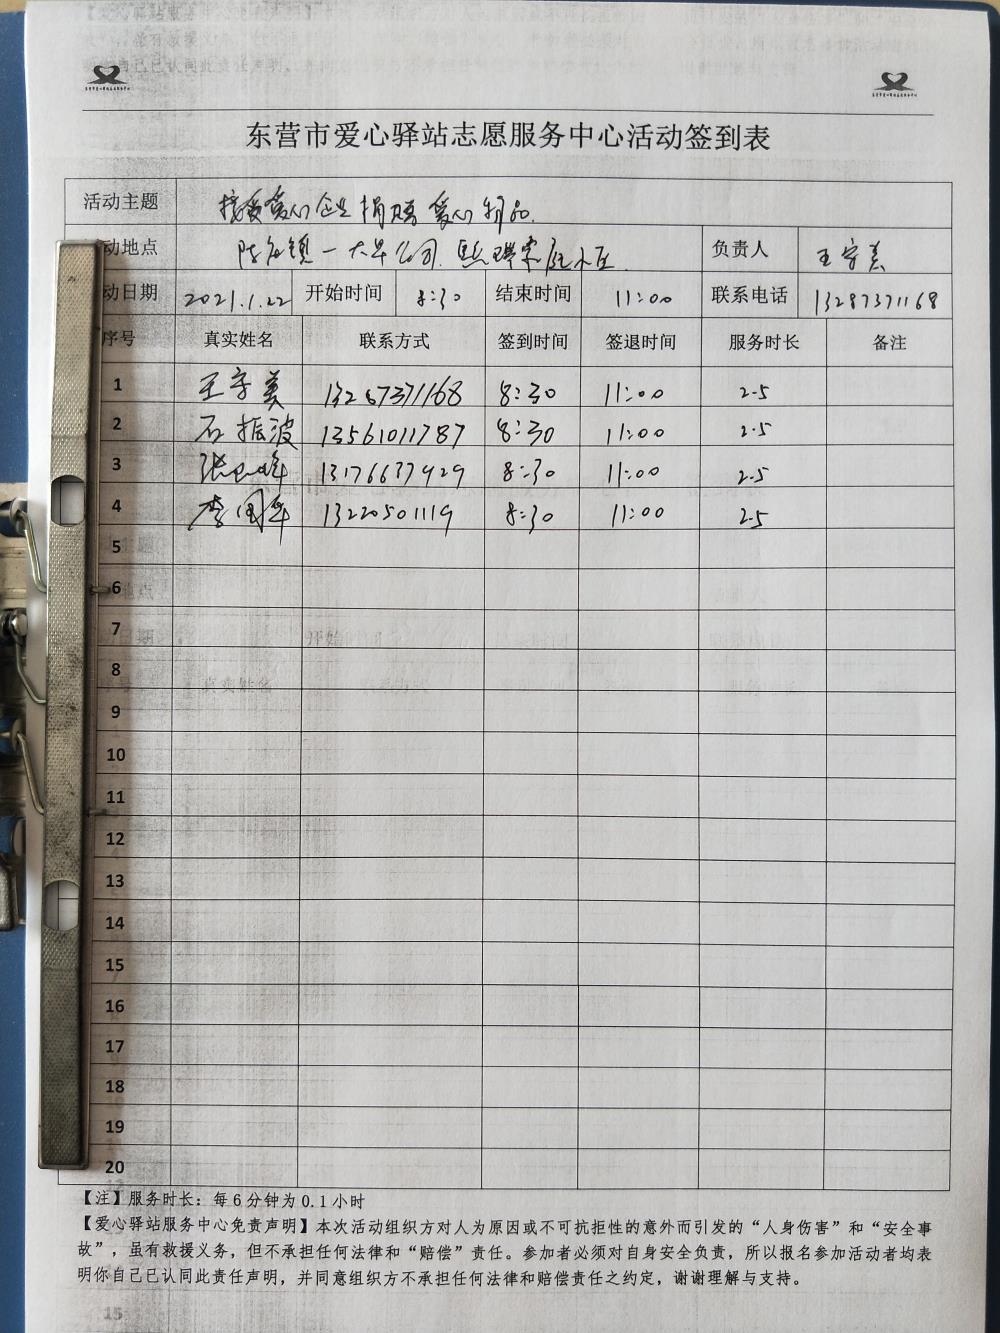 东营市爱心驿站志愿服务中心活动签到表
活动主题 接受爱心企业捐赠爱心物品.
动地点 负责人 王守美
动日期 2021.1.22 开始时间 8:30 结束时间 11:00 联系电话 13287371168
序号 真实姓名 联系方式 签到时间 签退时间 服务时长 备注
1 王守美 13287371168 8:30 11:00 2.5
2 石振波 13561011787 8:30 11:00 2.5
3 13176637929 8:30 11:00 2.5
4 李国华 13220501119 8:30 11:00 2.5
5
6
7
8
9
10
11
12
13
14
15
16
17
18
19
20
【注】服务时长：每6分钟为0.1小时
【爱心驿站服务中心免责声明】本次活动组织方对人为原因或不可抗拒性的意外而引发的“人身伤害”和“安全事
故”，虽有救援义务，但不承担任何法律和“赔偿”责任。参加者必须对自身安全负责，所以报名参加活动者均表
明你自己已认同此责任声明，并同意组织方不承担任何法律和赔偿责任之约定，谢谢理解与支持。